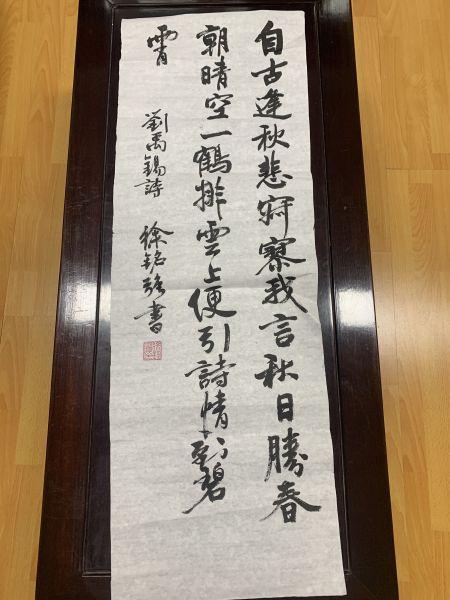 自古逢秋悲寂寥我言秋日勝春
朝晴空一鶴排雲上便引詩情到碧
霄
劉禹錫詩
徐銘 書